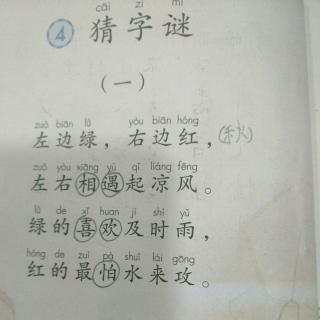 cāi zì mí
4 猜字谜
（一）
zuǒ biān lǜ yòu biān hóng
左边绿，右边红，(秋)
zuǒ yòu xiāng yù qǐ liáng fēng
左右相遇起凉风。
lǜ de xǐ huan jí shí yǔ
绿的喜欢及时雨，
hóng de zuì pà shuǐ lái gōng
红的最怕水来攻。